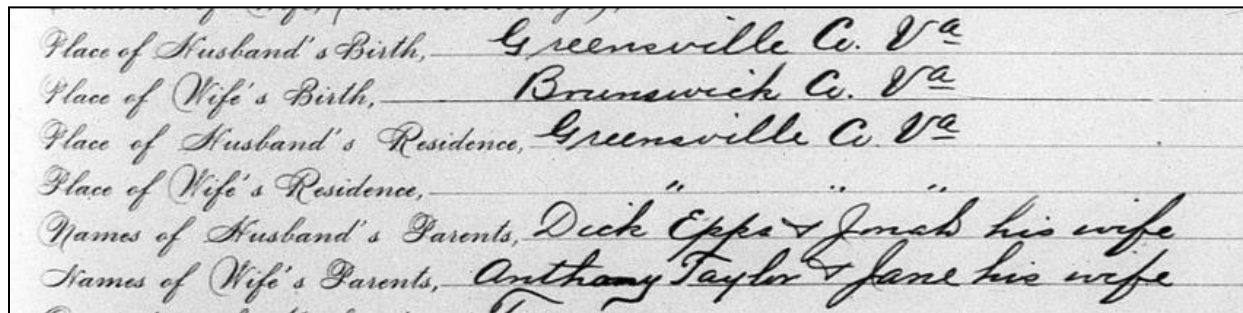 Place of Husband's Birth, Greensville Co. Va
Place of Wife's Birth, Brunswick Co. Va
Place of Husband's Residence, Greensville Co Va
Place of Wife's Residence, " " "
Names of Husband's Parents, Dick Epps & Jonah his wife
Names of Wife's Parents, Anthony Taylor & Jane his wife